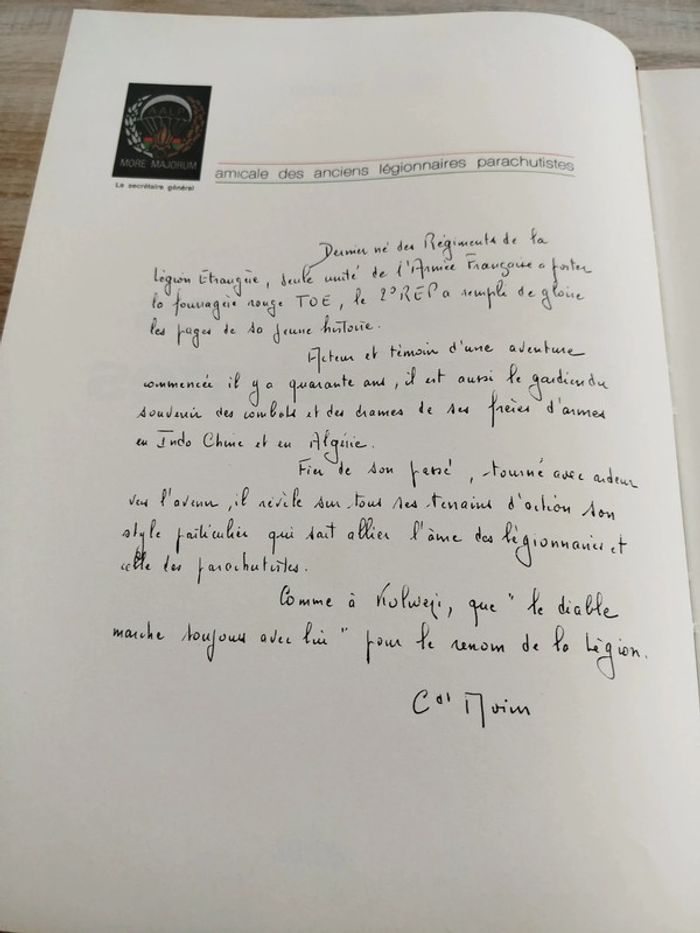 AALP
MORE MAJORUM
Le secrétaire général
amicale des anciens légionnaires parachutistes
Dernier né des Régiments de la
Légion Etrangère, seule unité de l'Armée Française a porter
la fourragère rouge TOE, le 2° REP a rempli de gloire
les pages de sa jeune histoire.
Acteur et témoin d'une aventure
commencée il y a quarante ans, il est aussi le gardien du
souvenir des combats et des drames de ses frères d'armes
en Indo Chine et en Algérie.
Fier de son passé, tourné avec ardeur
vers l'avenir, il révèle sur tous ses terrains d'action son
style particulier qui sait allier l'âme des légionnaires et
celle des parachutistes.
Comme à Kolwezi, que "le diable
marche toujours avec lui" pour le renom de la Légion.